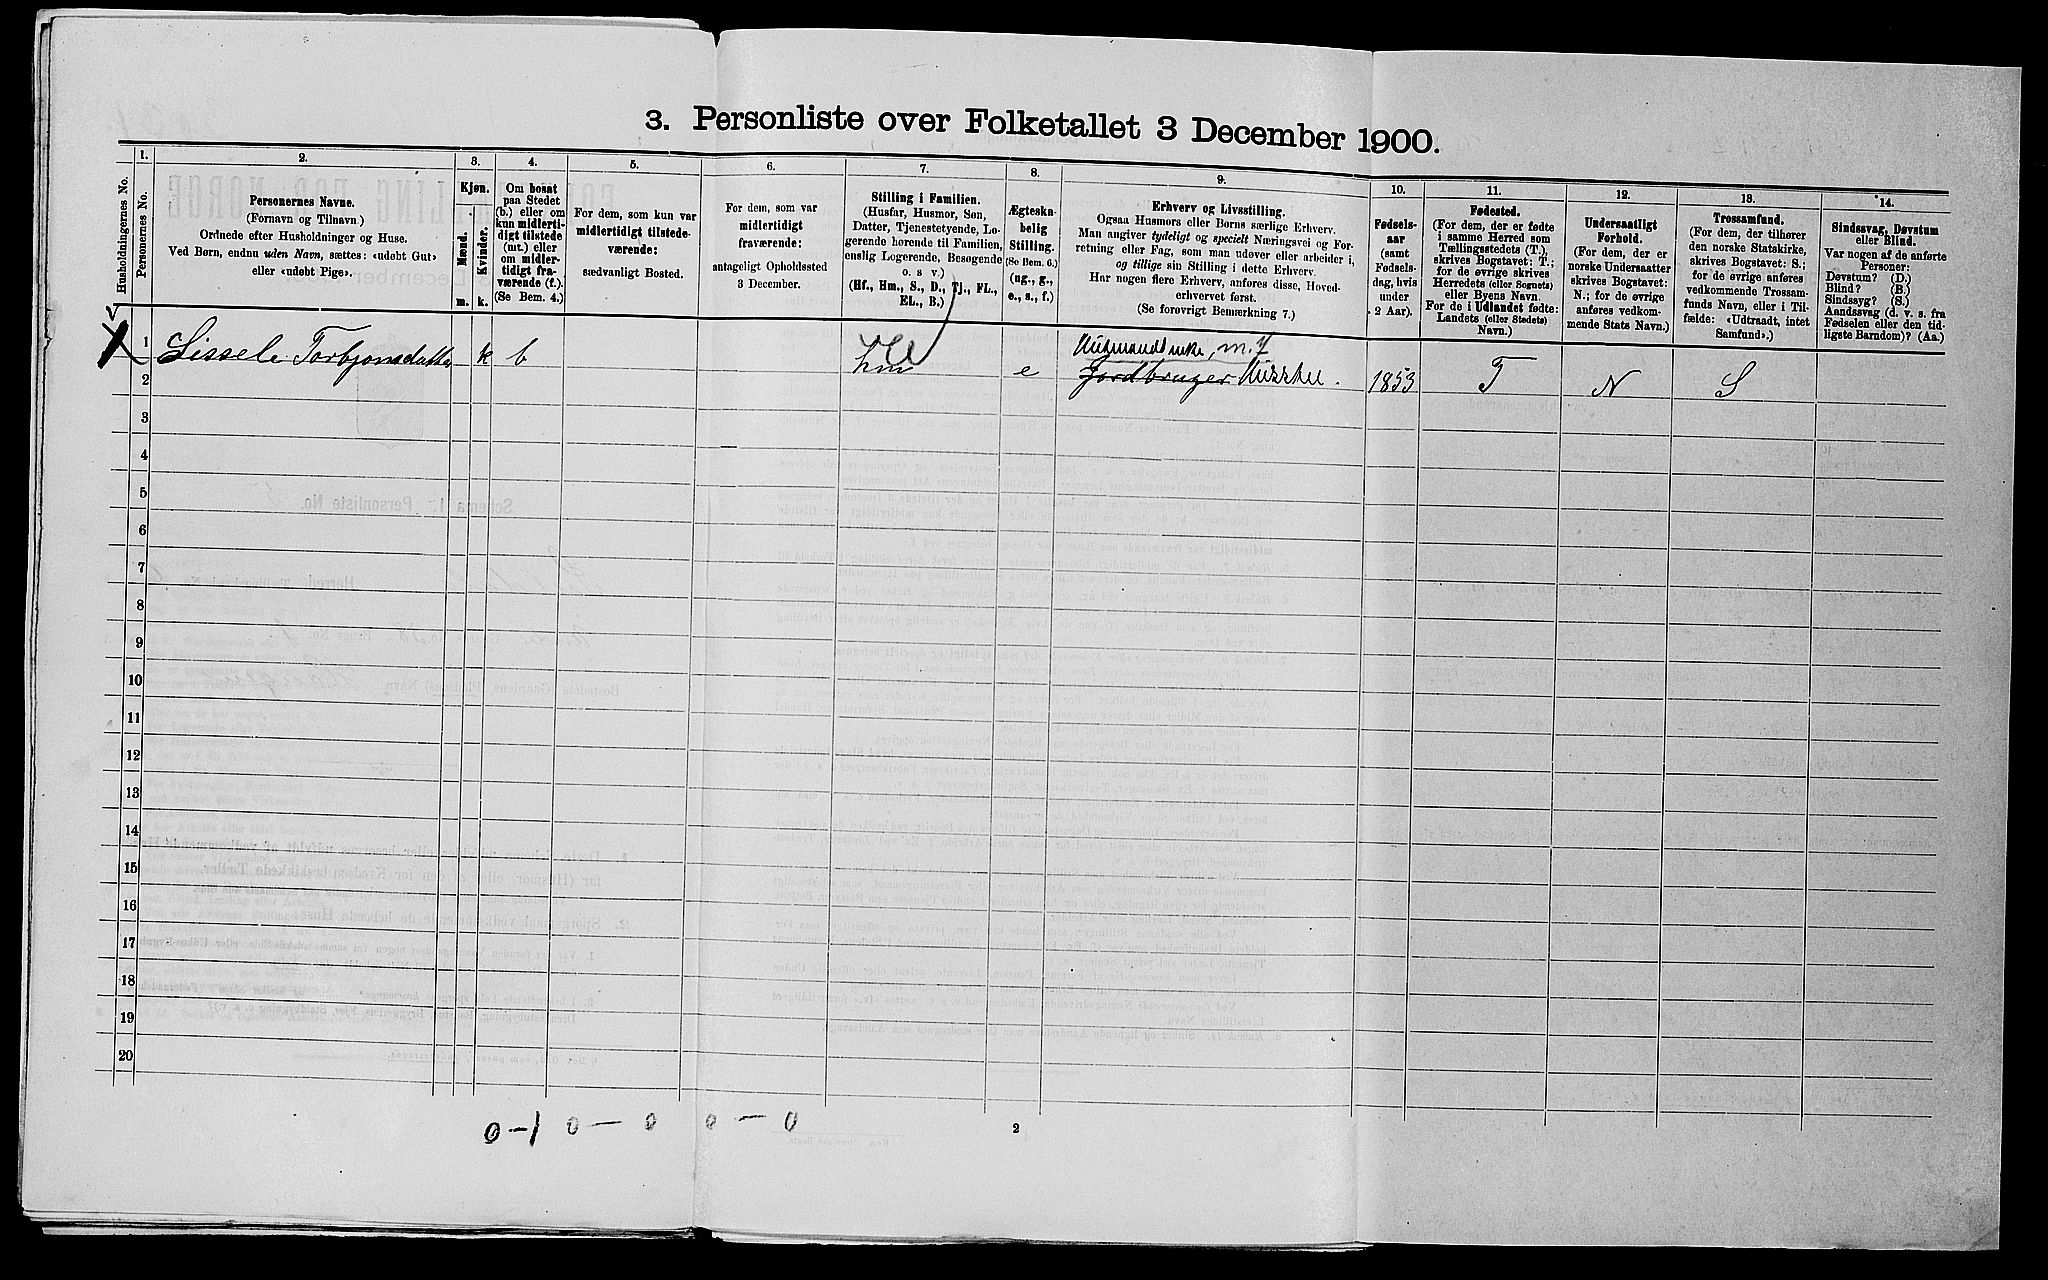 3. Personliste over Folketallet 3 December 1900.
Husholdningernes No.
1.
Personernes No.
2.
Personernes Navne.
(Fornavn og Tilnavn.)
Ordnede efter Husholdninger og Huse.
Ved Børn, endnu uden Navn, sættes: «udøbt Gut»
eller «udøbt Pige».
3.
Kjøn.
Mænd.
Kvinder.
m. k.
4.
Om bosat
paa Stedet
(b.) eller om
kun midlerti-
digt tilstede
(mt.) eller
om midler-
tidigt fra-
værende (f.).
(Se Bem. 4.)
5.
For dem, som kun var
midlertidigt tilstede-
værende:
sædvanligt Bosted.
6.
For dem, som var
midlertidigt
fraværende:
antageligt Opholdssted
3 December.
7.
Stilling i Familien.
(Husfar, Husmor, Søn,
Datter, Tjenestetyende, Lo-
gerende hørende til Familien,
enslig Logerende, Besøgende
o. s v.)
(Hf., Hm., S., D., Tj., FL.,
EL., B.)
8.
Ægteska-
belig
Stilling.
(Se Bem. 6.)
(ug., g.,
e., s., f.)
9.
Erhverv og Livsstilling.
Ogsaa Husmors eller Børns særlige Erhverv.
Man angiver tydeligt og specielt Næringsvei og For-
retning eller Fag, som man udøver eller arbeider i,
og tillige sin Stilling i dette Erhverv.
Har nogen flere Erhverv, anføres disse, Hoved-
erhvervet først.
(Se forøvrigt Bemærkning 7.)
10.
Fødsels-
aar
(samt
Fødsels-
dag, hvis
under
2 Aar).
11.
Fødested.
(For dem, der er fødte
i samme Herred som
Tællingsstedets (T.),
skrives Bogstavet: T.;
for de øvrige skrives
Herredets (eller Sognets)
eller Byens Navn.
For de i Udlandet fødte:
Landets (eller Stedets)
Navn.)
12.
Undersaatligt
Forhold.
(For dem, der er
norske Undersaatter
skrives Bogstavet:
N.; for de øvrige
anføres vedkom-
mende Stats Navn.)
13.
Trossamfund.
(For dem, der tilhører
den norske Statskirke,
skrives Bogstavet: S.;
for de øvrige anføres
vedkommende Trossam-
funds Navn, eller i Til-
fælde: «Udtraadt, intet
Samfund».)
14.
Sindssvag, Døvstum
eller Blind.
Var nogen af de anførte
Personer:
Døvstum? (D.)
Blind? (B.)
Sindssyg? (S.)
Aandssvag (d. v. s. fra
Fødselen eller den tid-
ligste Barndom)? (Aa.)
1 Sissele Torbjonsdatter k b e 1853 T N S
Jordbruger
2
3
4
5
6
7
8
9
10
11
12
13
14
15
16
17
18
19
20
0-1 0-0 0-0
2